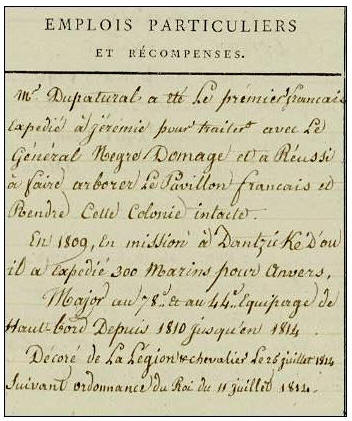 EMPLOIS PARTICULIERS
ET RÉCOMPENSES.
Mr. Dupatural a été Le prémier francais
Expedié à Jérémie pour traiter avec Le
Général Negre Domage et a Réussi
à faire arborer Le Pavillon francais et
Rendre Cette Colonie intacte.
En 1809, En mission à Dantzick D'ou
il a Expedié 300 Marins pour Anvers,
Major au 78e. et au 44e. Equipage de
Haut-bord Depuis 1810 jusqu'en 1814.
Décoré de La Légion & chevalier Le 25 juillet 1814
Suivant ordonnance du Roi du 11 juillet 1814.